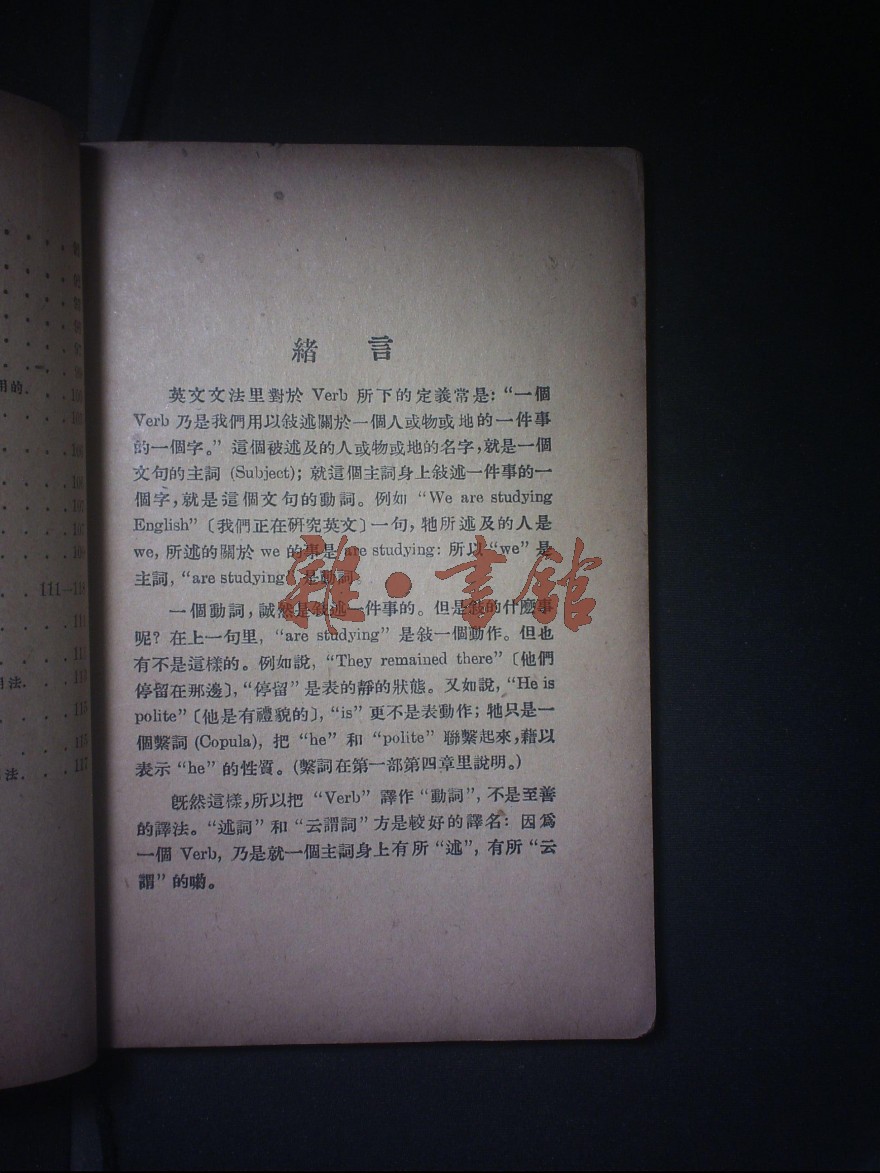 用的.
111—118
用法.
法.
117
緒 言
英文文法里對於 Verb 所下的定義常是：“一個
Verb 乃是我們用以敍述關於一個人或物或地的一件事
的一個字。”這個被述及的人或物或地的名字，就是一個
文句的主詞 (Subject)；就這個主詞身上敍述一件事的一
個字，就是這個文句的動詞。例如 “We are studying
English”〔我們正在研究英文〕一句，牠所述及的人是
we，所述的關於 we 的事是 are studying：所以 “we” 是
主詞，“are studying” 是動詞。
一個動詞，誠然是敍述一件事的。但是敍的什麼事
呢？在上一句里，“are studying” 是敍一個動作。但也
有不是這樣的。例如說，“They remained there”〔他們
停留在那邊〕，“停留” 是表的靜的狀態。又如說，“He is
polite”〔他是有禮貌的〕，“is” 更不是表動作；牠只是一
個繫詞 (Copula)，把 “he” 和 “polite” 聯繫起來，藉以
表示 “he” 的性質。(繫詞在第一部第四章里說明。)
旣然這樣，所以把 “Verb” 譯作 “動詞”，不是至善
的譯法。“述詞” 和 “云謂詞” 方是較好的譯名：因爲
一個 Verb，乃是就一個主詞身上有所 “述”，有所 “云
謂” 的喲。
雜·書館